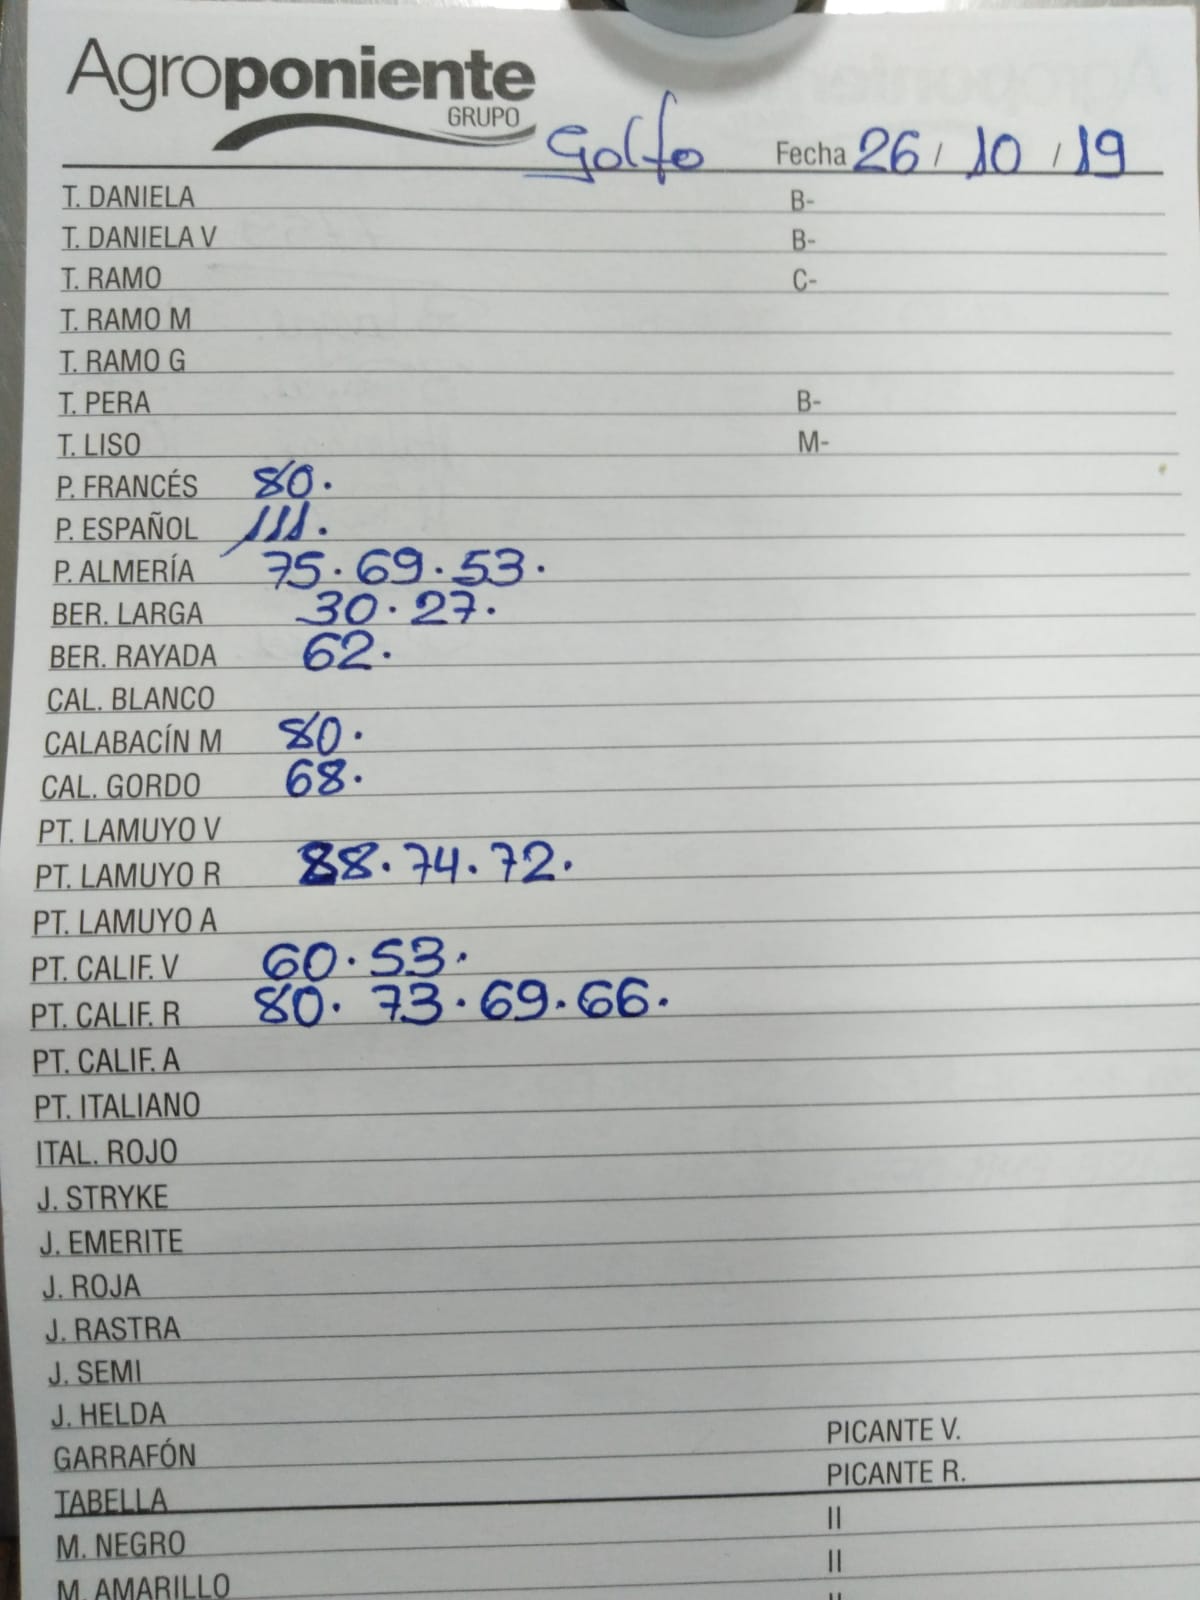 Agroponiente
GRUPO
Golfo Fecha 26 / 10 / 19
T. DANIELA B-
T. DANIELA V B-
T. RAMO C-
T. RAMO M
T. RAMO G
T. PERA B-
T. LISO M-
P. FRANCÉS 80.
P. ESPAÑOL 111.
P. ALMERÍA 75. 69. 53.
BER. LARGA 30. 27.
BER. RAYADA 62.
CAL. BLANCO
CALABACÍN M 80.
CAL. GORDO 68.
PT. LAMUYO V
PT. LAMUYO R 88. 74. 72.
PT. LAMUYO A
PT. CALIF. V 60. 53.
PT. CALIF. R 80. 73. 69. 66.
PT. CALIF. A
PT. ITALIANO
ITAL. ROJO
J. STRYKE
J. EMERITE
J. ROJA
J. RASTRA
J. SEMI
J. HELDA
GARRAFÓN PICANTE V.
TABELLA PICANTE R.
M. NEGRO II
M. AMARILLO II